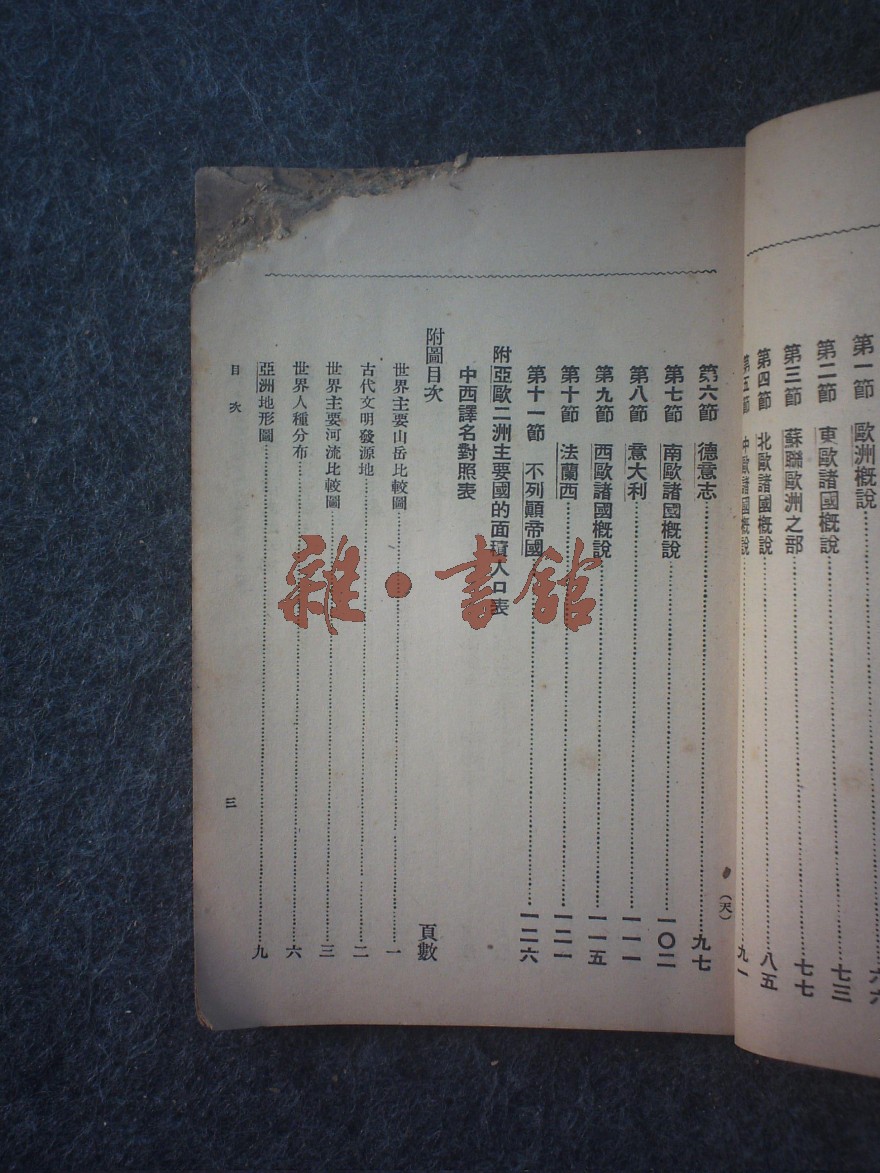 第一節 歐洲概說 六六
第二節 東歐諸國概說 七三
第三節 蘇聯歐洲之部 七七
第四節 北歐諸國概說 八五
第五節 中歐諸國概說 九一
(天)
第六節 德意志 九七
第七節 南歐諸國概說 一〇二
第八節 意大利 一一一
第九節 西歐諸國概說 一一五
第十節 法蘭西 一二一
第十一節 不列顛帝國 一二六
附亞歐二洲主要國的面積人口表
中西譯名對照表
附圖目次 頁數
世界主要山岳比較圖 一
古代文明發源地 二
世界主要河流比較圖 三
世界人種分布 六
亞洲地形圖 九
目次 三
雜·書館